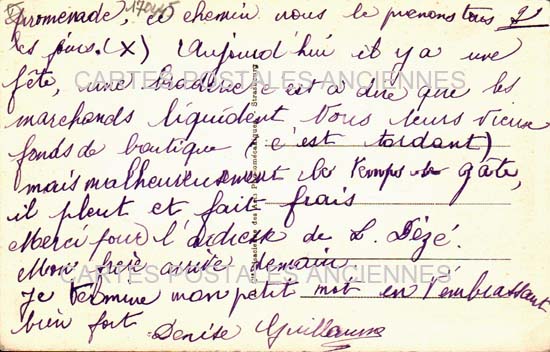 promenade, ce chemin nous le prenons tous
les jours. (X) Aujourd'hui il y a une
fête, une braderie c'est à dire que les
marchands liquident tous leurs vieux
fonds de boutique (c'est tordant)
mais malheureusement le temps se gâte,
il pleut et fait frais
Merci pour l'adresse de L. Dézé.
Mon frère arrive demain.
Je termine mon petit mot en t'embrassant
bien fort. Denise Guillaume
CARTES POSTALES ANCIENNES
CARTES POSTALES ANCIENNES
Strasbourg